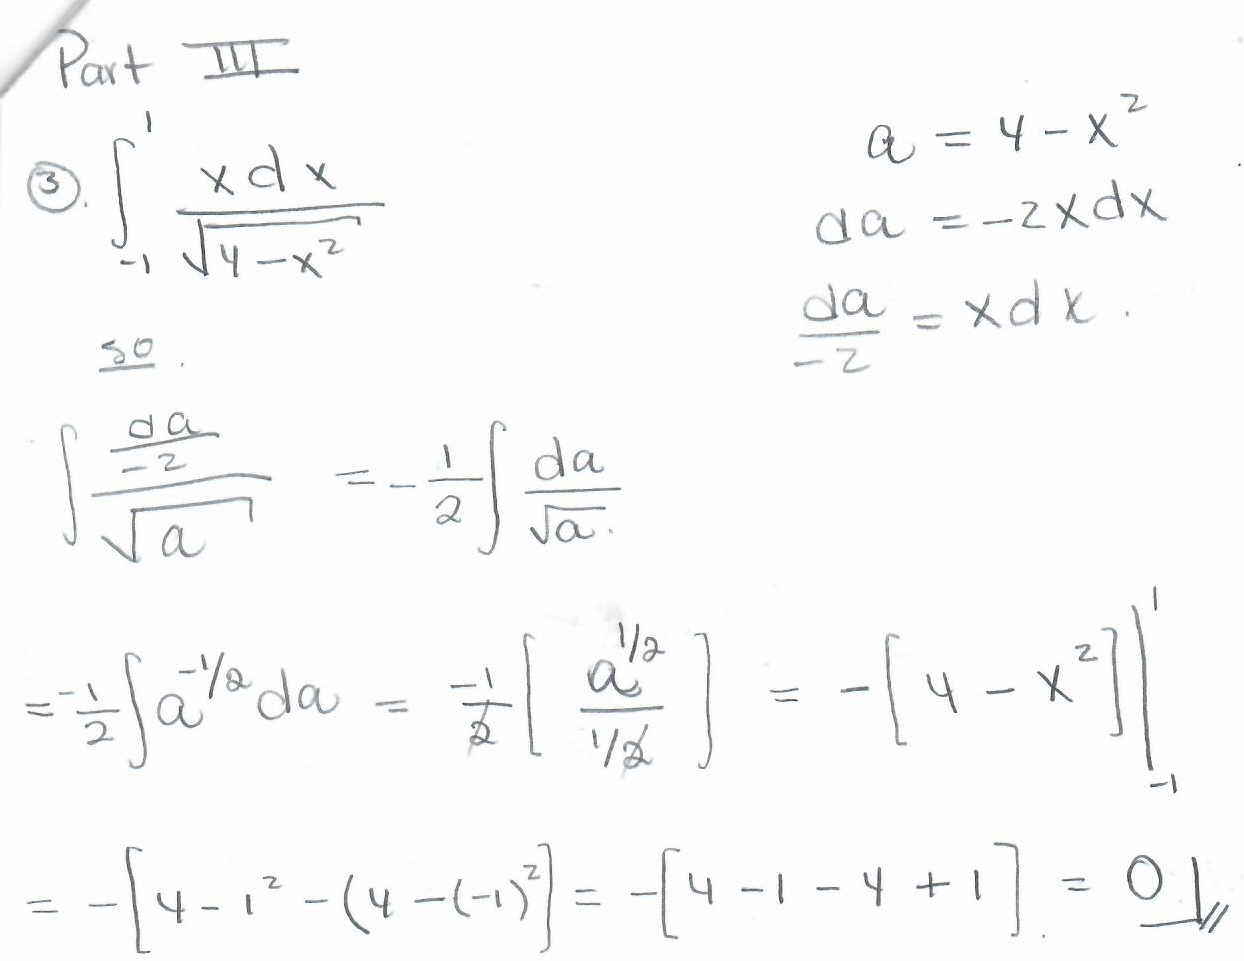 Part III
③. ∫_{-1}^{1} x dx / √(4 - x²)
a = 4 - x²
da = -2xdx
da/-2 = xdx.
so.
∫ (da/-2) / √a = -1/2 ∫ da/√a.
= -1/2 ∫ a^{-1/2} da = -1/2 [a^{1/2} / 1/2] = -[4 - x²] |_{-1}^{1}
= -[4 - 1² - (4 - (-1)²] = -[4 - 1 - 4 + 1] = 0